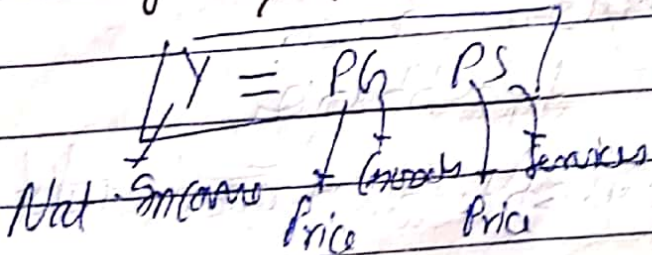 Y = PG PS
Nat. Income Price Goods Price Services